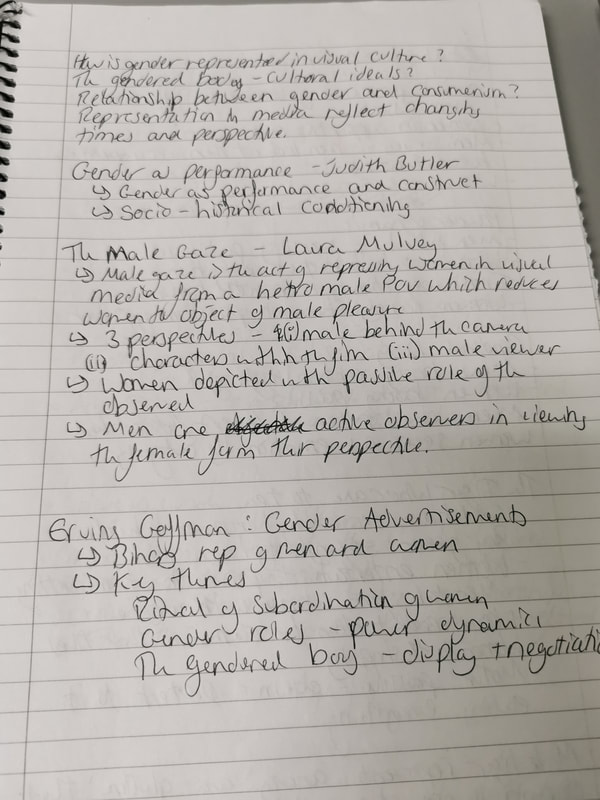 How is gender represented in visual culture?
The gendered body - cultural ideals?
Relationship between gender and consumerism?
Representation in media reflect changing
times and perspective.
Gender as performance - Judith Butler
↳ Gender as performance and construct
↳ Socio-historical conditioning
The Male Gaze - Laura Mulvey
↳ Male gaze is the act of repressing women in visual
media from a hetro male POV which reduces
women to object of male pleasure
↳ 3 perspectives - (i) male behind the camera
(ii) characters within the film (iii) male viewer
↳ Women depicted with passive role of the
observed
↳ Men are active observers in viewing
the female form their perspective.
Erving Goffman : Gender Advertisements
↳ Binary rep of men and women
↳ Key themes
Ritual of subordination of women
Gender roles - power dynamics
The gendered body - display + negotiation